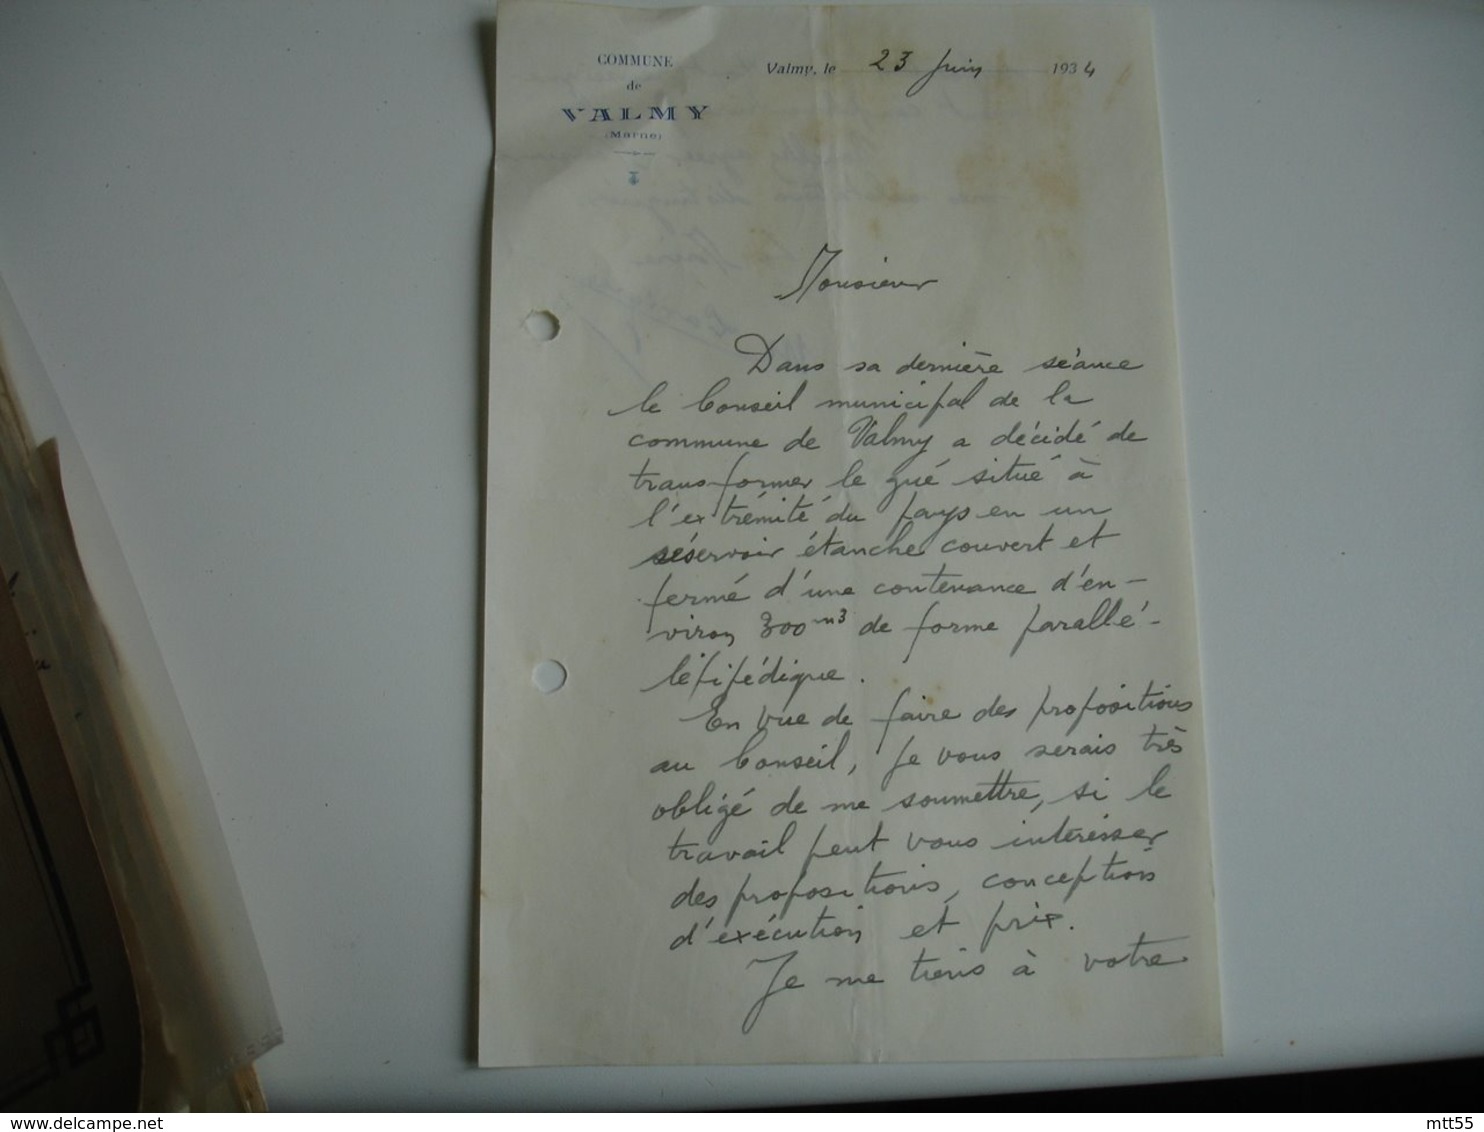 COMMUNE
de
VALMY
(Marne)
Valmy, le 23 Juin 1934
Monsieur
Dans sa dernière séance
le Conseil municipal de la
commune de Valmy a décidé de
transformer le gué situé à
l'extrémité du pays en un
réservoir étanche couvert et
fermé d'une contenance d'en-
viron 300 m3 de forme parallé-
lépipédique.
En vue de faire des propositions
au Conseil, je vous serais très
obligé de me soumettre, si le
travail peut vous intéresser
des propositions, conception
d'exécution et prix.
Je me tiens à votre
mtt55